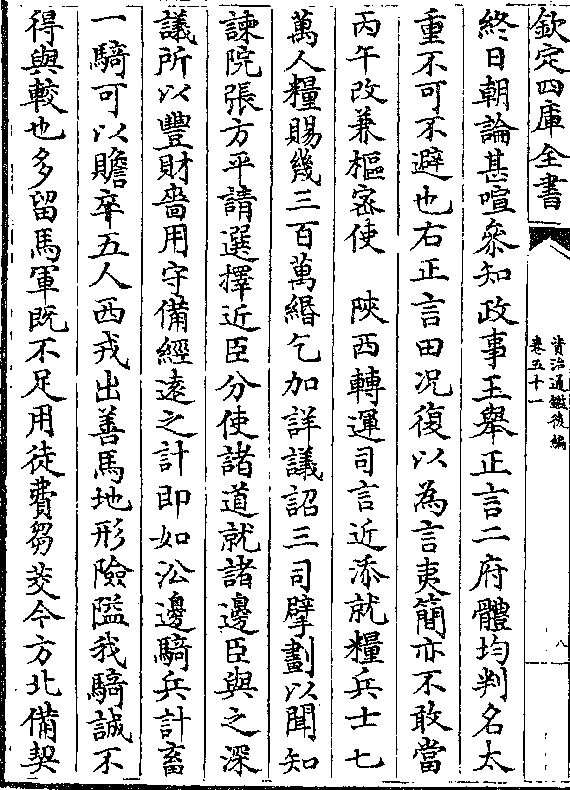 欽定四庫全書
資治通鑑後編
卷五十一
八
終日朝論甚喧叅知政事王舉正言二府體均判名太
重不可不避也右正言田况復以為言夷簡亦不敢當
丙午改兼樞宻使　陜西轉運司言近添就糧兵士七
萬人糧賜幾三百萬緡乞加詳議詔三司擘劃以聞知
諫院張方平請選擇近臣分使諸道就諸邊臣與之深
議所以豐財嗇用守備經逺之計即如㳂邊騎兵計畜
一騎可以贍卒五人西戎出善馬地形險隘我騎誠不
得與較也多留馬軍既不足用徒費芻茭今方北備契